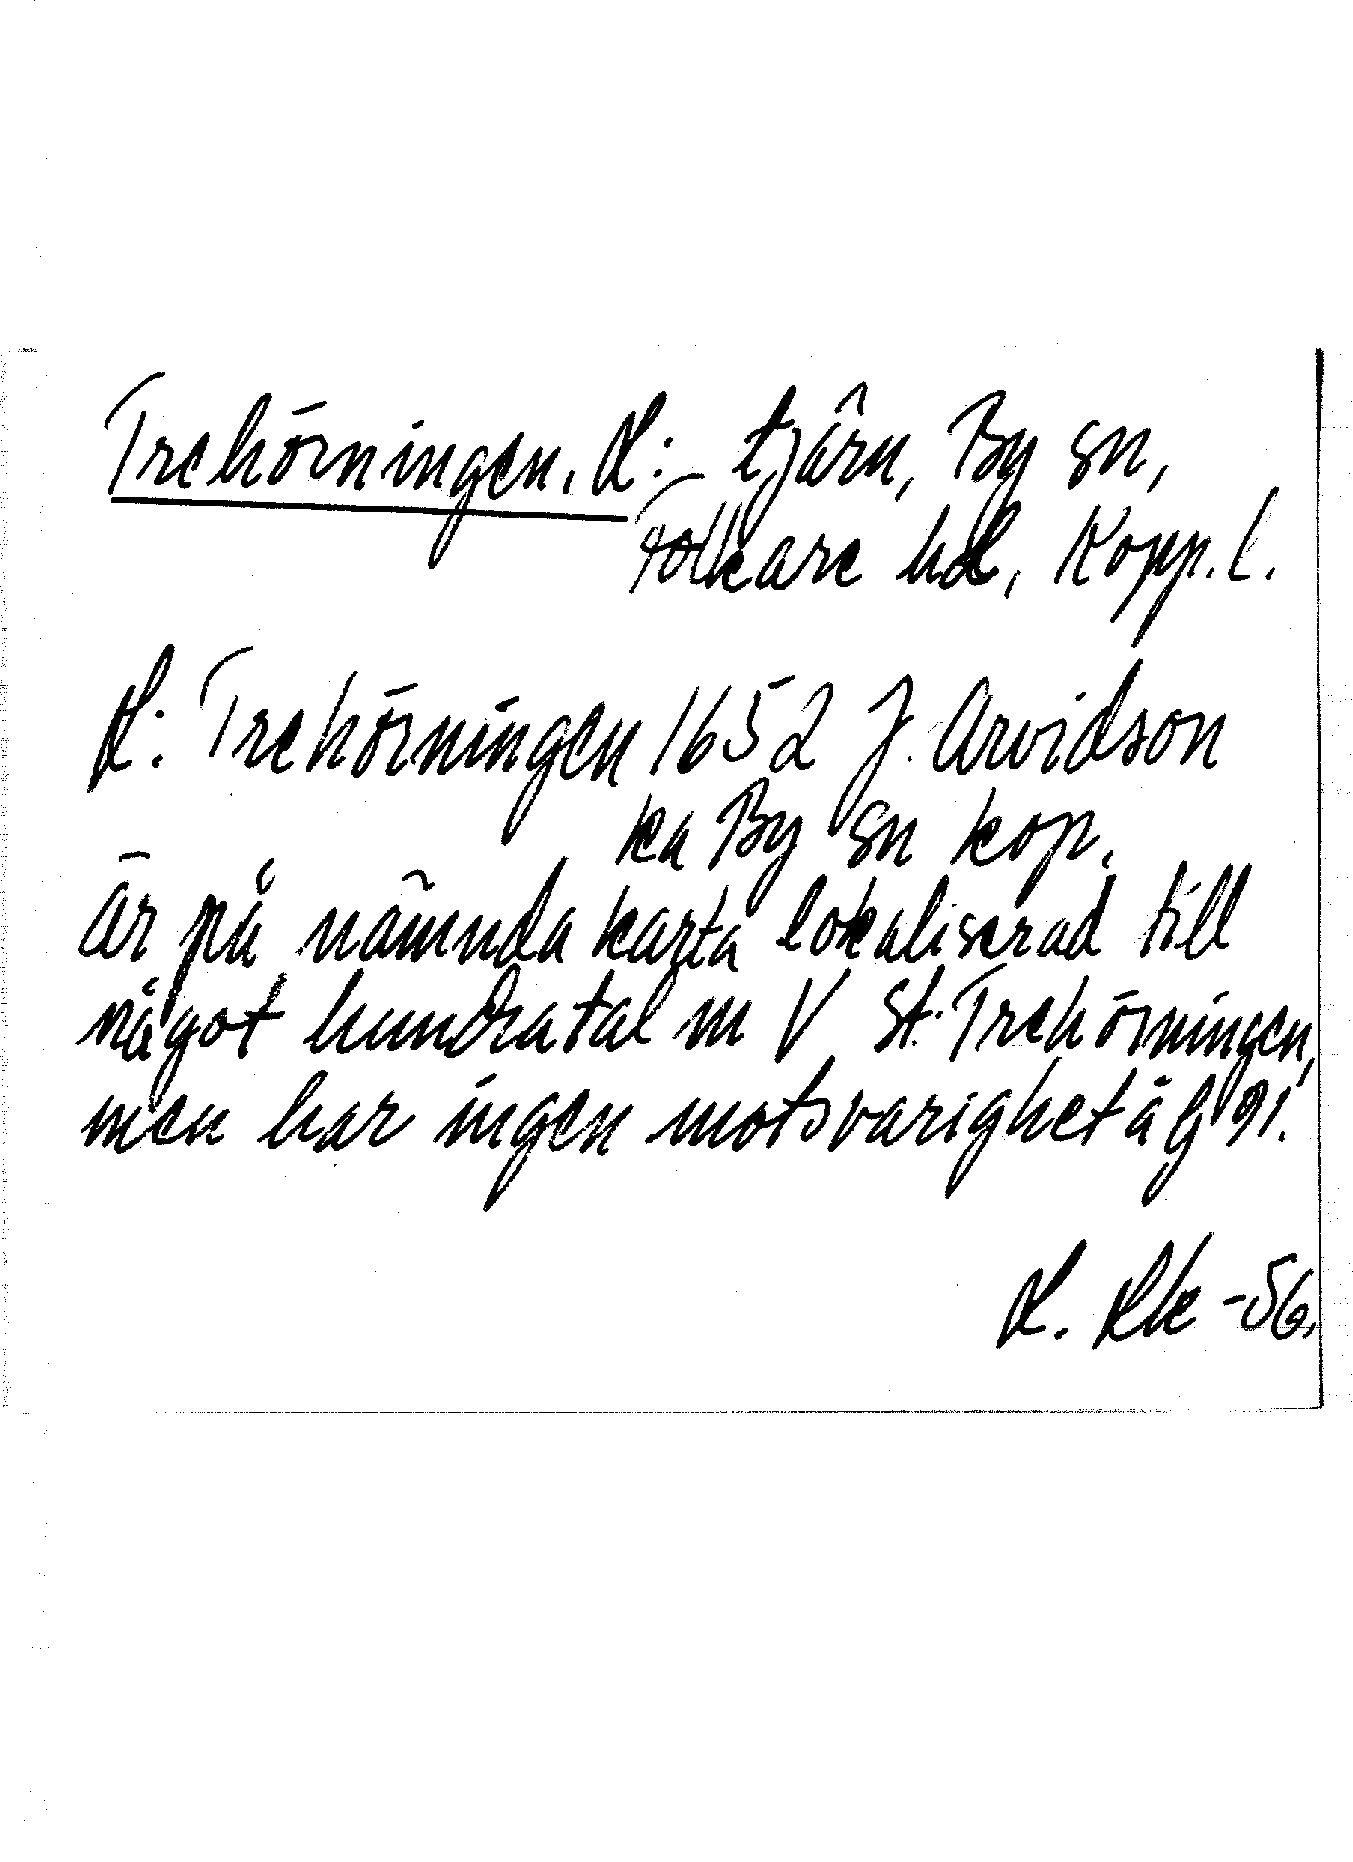 Trehörningen, L: tjärn, By sn,
Folkare hd, Kopp. l.
L: Trehörningen 1652 J. Arvidson
ka By sn kop.
är på nämnda karta lokaliserad till
något hundratal m V St. Trehörningen,
men har ingen motsvarighet å G 91.
-56.